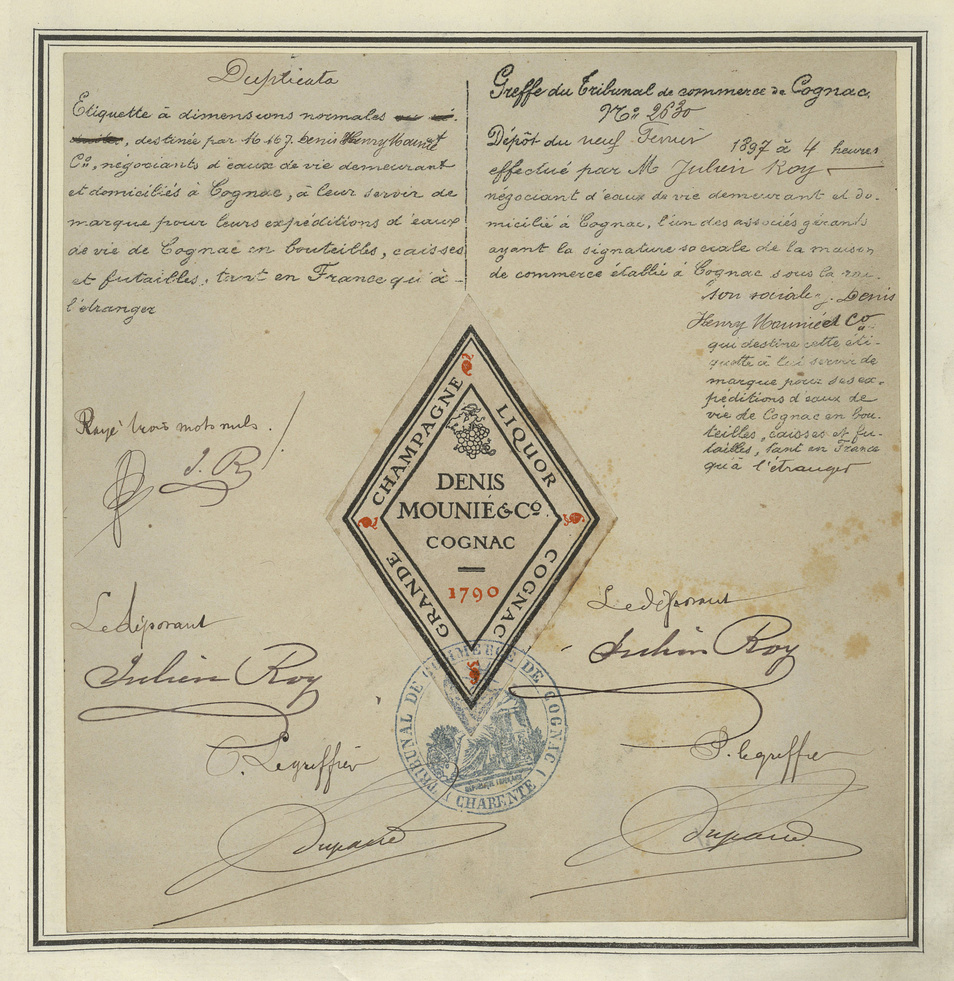 Duplicata
Etiquette à dimensions normales
destinée par M. et J. Denis Henry Mounié &
Co, négociants d'eaux de vie demeurant
et domiciliés à Cognac, à leur servir de
marque pour leurs expéditions d'eaux
de vie de Cognac en bouteilles, caisses
et futailles, tant en France qu'à
l'étranger
Rayé trois mots nuls.
J. R
Le déposant
Julien Roy
P. Le greffier
Greffe du Tribunal de commerce de Cognac.
No 2630
Dépôt du neuf Fevrier 1897 à 4 heures
effectué par M Julien Roy
négociant d'eaux de vie demeurant et do-
micilié à Cognac, l'un des associés gérants
ayant la signature sociale de la maison
de commerce établie à Cognac sous la rai-
son sociale J. Denis
Henry Mounié et Co
qui destine cette éti-
quette à lui servir de
marque pour ses ex-
péditions d'eaux de
vie de Cognac en bou-
teilles, caisses et fu-
tailles, tant en France
qu'à l'étranger
Le déposant
Julien Roy
P. le greffier
GRANDE CHAMPAGNE
LIQUOR COGNAC
DENIS
MOUNIÉ & Co.
COGNAC
1790
TRIBUNAL DE COMMERCE DE COGNAC
(CHARENTE)
RÉPUBLIQUE FRANÇAISE